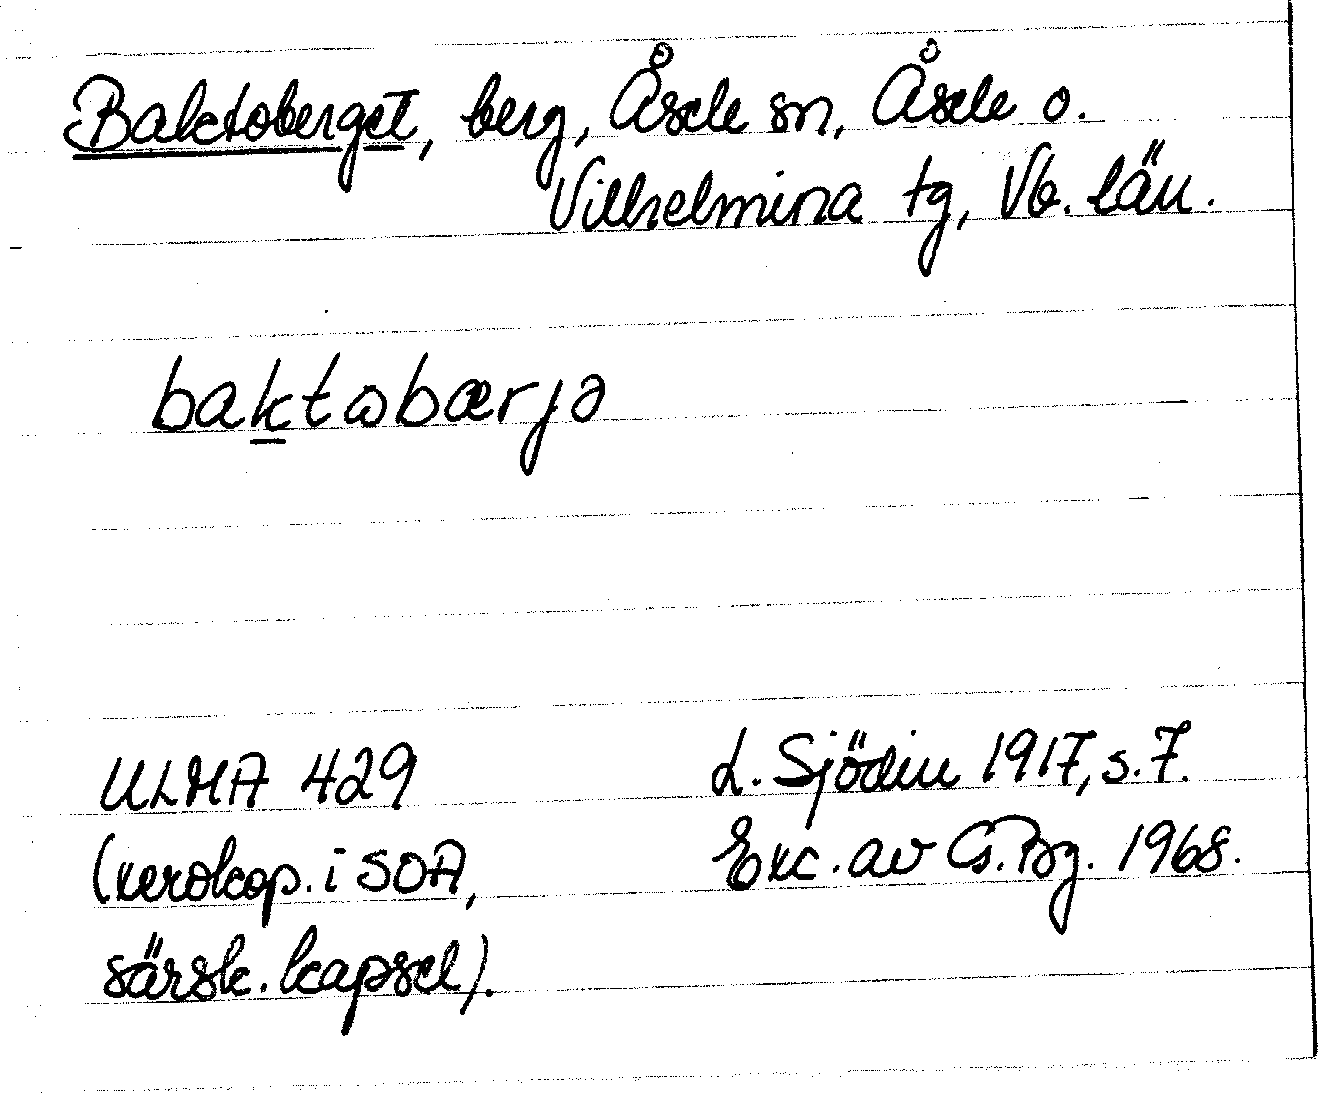 Baktoberget, berg, Åsele sn, Åsele o.
Vilhelmina tg, Vb. län.
baktωbærjə
ULMA 429
(xerokop. i SOA,
särsk. kapsel).
L. Sjödin 1917, s. 7.
Exc. av G. Bg. 1968.